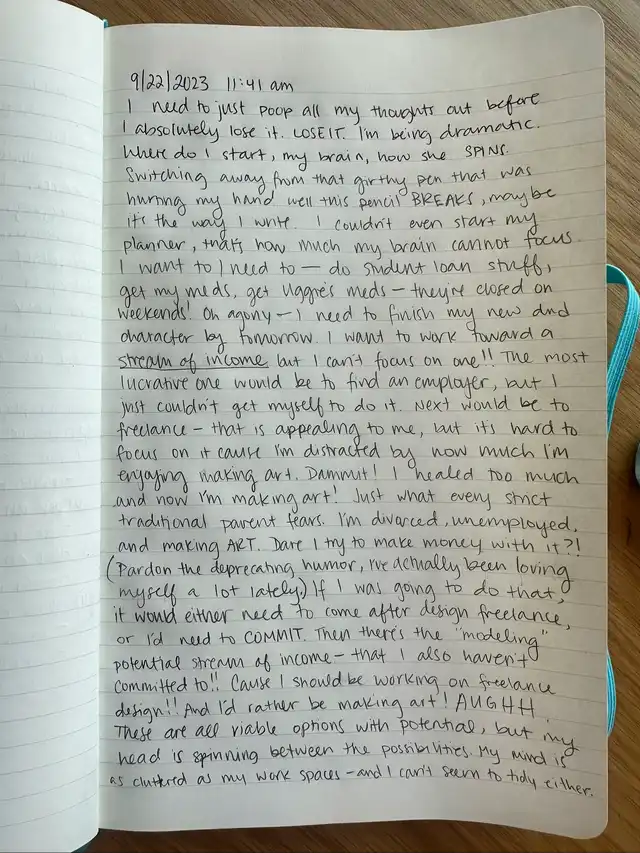 9/22/2023 11:41 am
I need to just poop all my thoughts out before
I absolutely lose it. LOSE IT. I'm being dramatic.
Where do I start, my brain, how she SPINS.
Switching away from that girthy pen that was
hurting my hand well this pencil BREAKS, maybe
it's the way I write. I couldn't even start my
planner, that's how much my brain cannot focus.
I want to/need to — do student loan stuff,
get my meds, get Uggie's meds — they're closed on
weekends! Oh agony — I need to finish my new dnd
character by tomorrow. I want to work toward a
stream of income but I can't focus on one!! The most
lucrative one would be to find an employer, but I
just couldn't get myself to do it. Next would be to
freelance — that is appealing to me, but it's hard to
focus on it cause I'm distracted by how much I'm
enjoying making art. Dammit! I healed too much
and now I'm making art! Just what every strict
traditional parent fears. I'm divorced, unemployed,
and making ART. Dare I try to make money with it?!
(Pardon the deprecating humor, I've actually been loving
myself a lot lately.) If I was going to do that,
it would either need to come after design freelance,
or I'd need to COMMIT. Then there's the "modeling"
potential stream of income — that I also haven't
committed to!! Cause I should be working on freelance
design!! And I'd rather be making art! AUGHH
These are all viable options with potential, but my
head is spinning between the possibilities. My mind is
as cluttered as my work spaces — and I can't seem to tidy either.